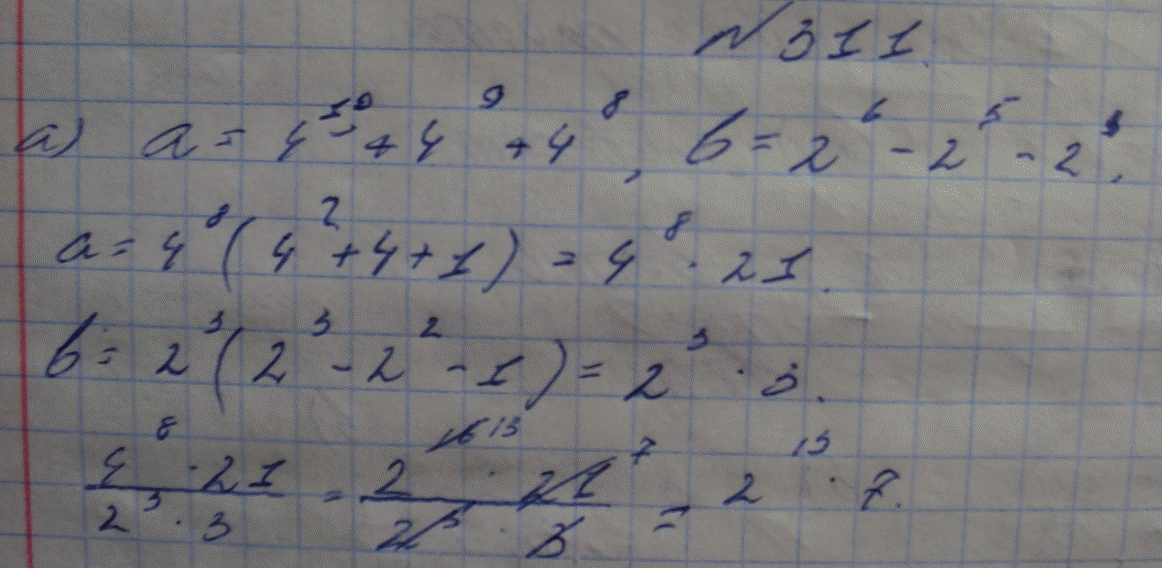 №311.
а) a = 4¹⁰ + 4⁹ + 4⁸, b = 2⁶ - 2⁵ - 2³.
a = 4⁸(4² + 4 + 1) = 4⁸ · 21.
b = 2³(2³ - 2² - 1) = 2³ · 3.
4⁸ · 21 / 2³ · 3 = 2¹⁶ ¹³ · 21 ⁷ / 2³ · 3 = 2¹³ · 7.